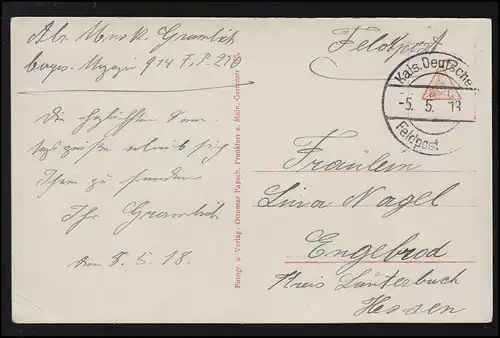 Abs. Musk. Gramlich
Magazin 914 F.P. 270
Die herzlichsten
erlaubt sich
Ihnen zu senden
Ihr Gramlich
den 5.5.18.
Photogr. u. Verlag: Ottomar Papsch, Frankfurt a. Main,
Feldpost
Kais. Deutsche
-5. 5. 18
Feldpost
Fräulein
Lina Nagel
Engelrod
Kreis Lauterbach
Hessen